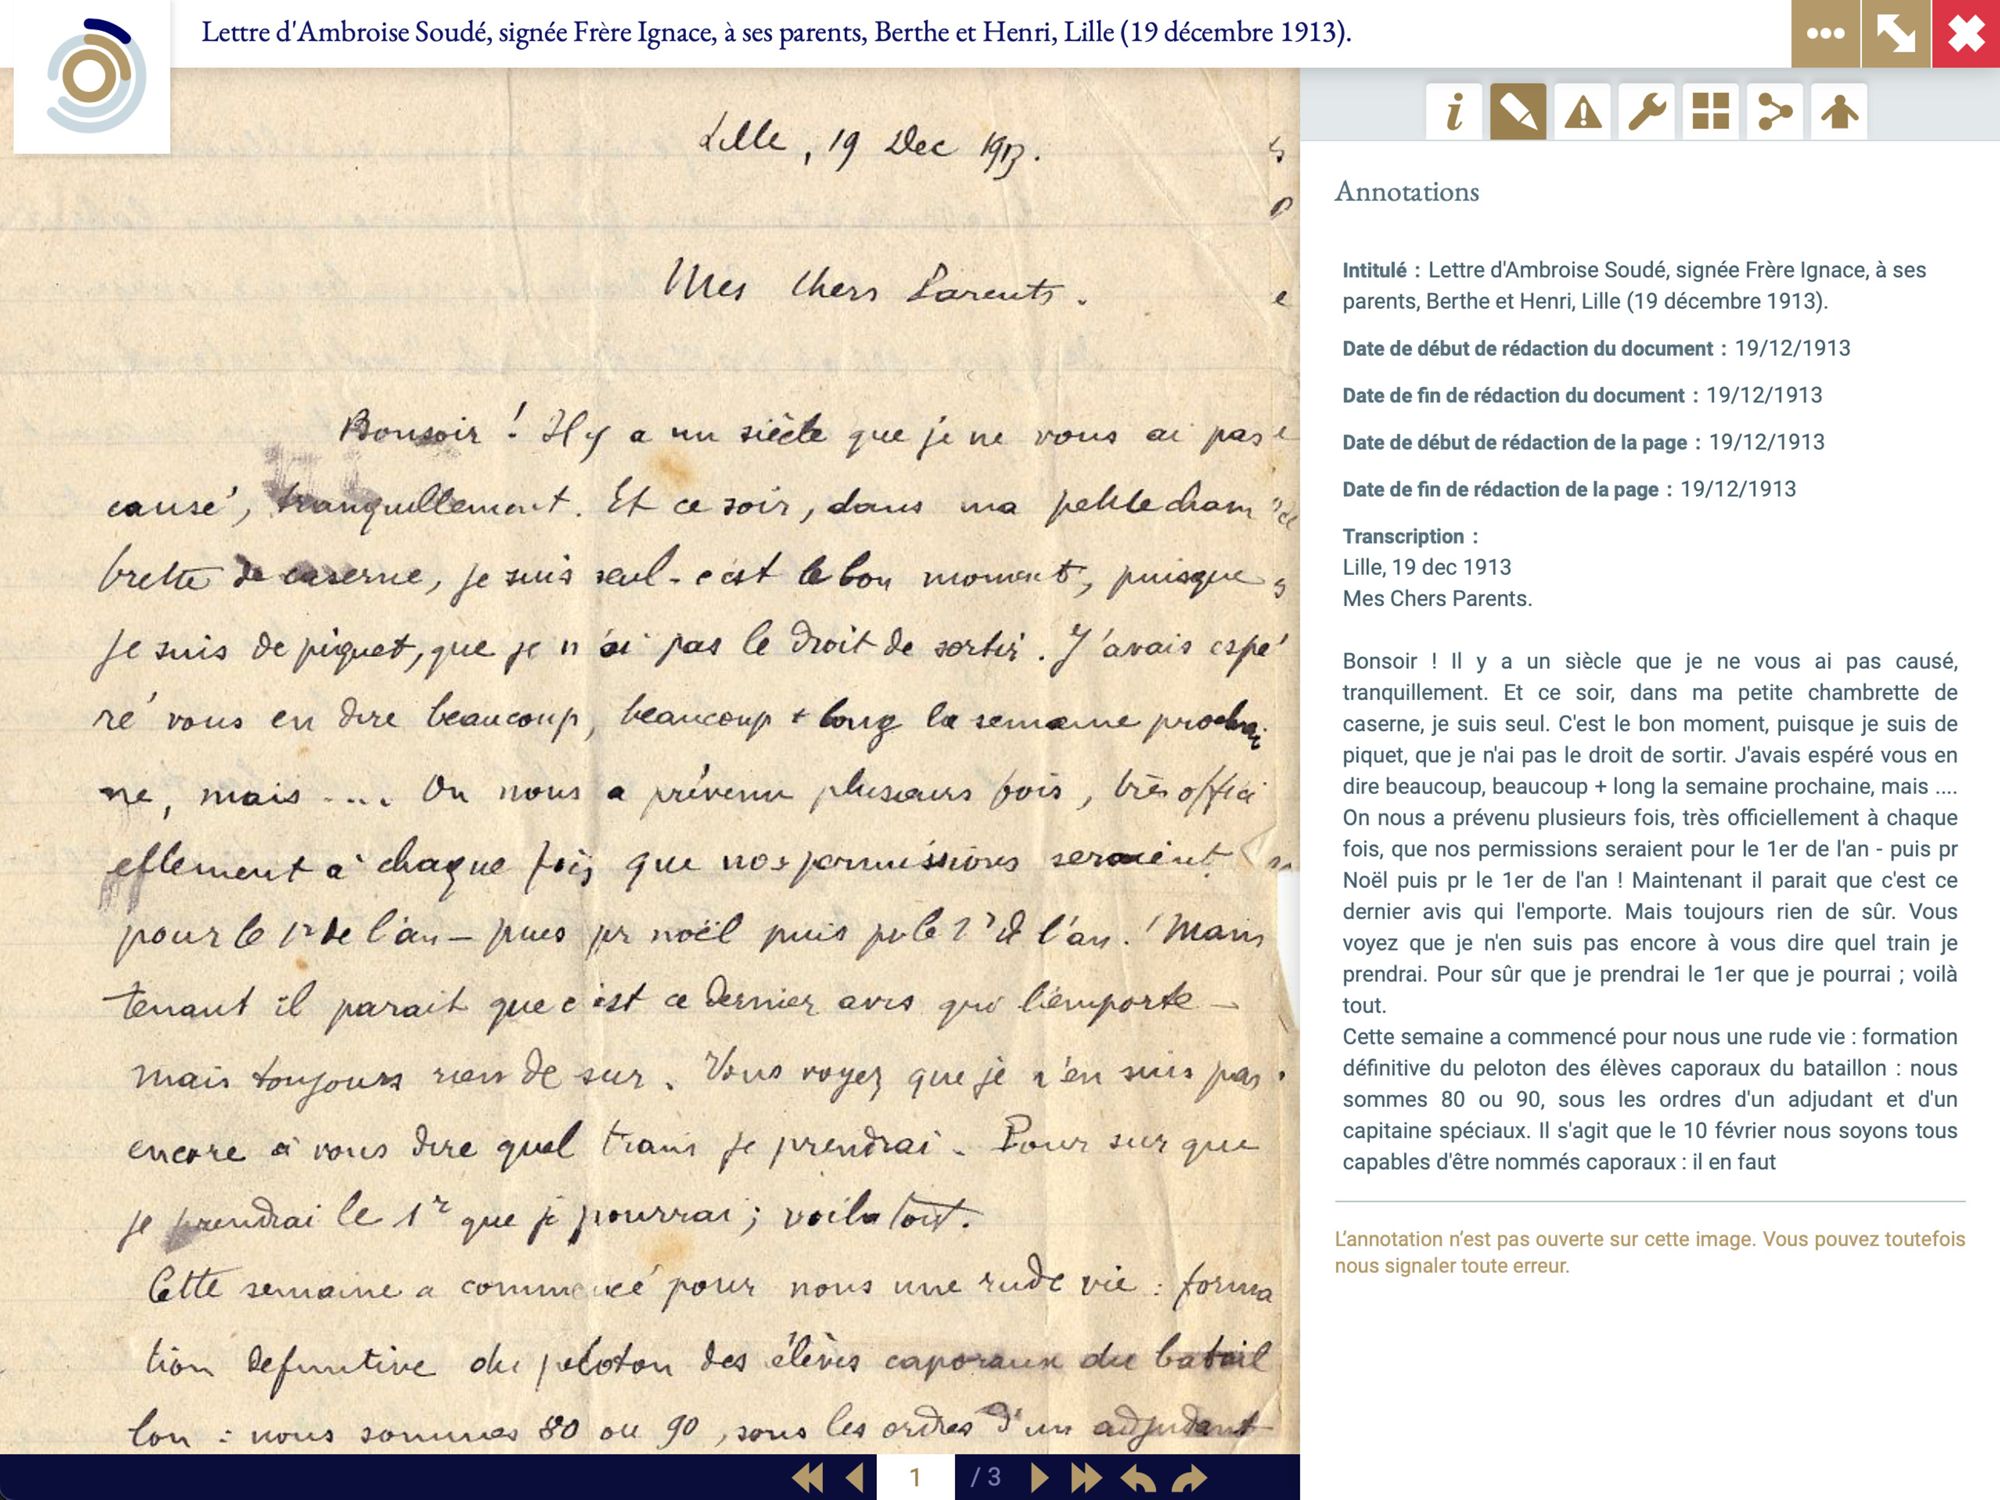 Lettre d'Ambroise Soudé, signée Frère Ignace, à ses parents, Berthe et Henri, Lille (19 décembre 1913).
Lille, 19 Dec 1913.
Mes Chers Parents.
Bonsoir ! Il y a un siècle que je ne vous ai pas
causé, tranquillement. Et ce soir, dans ma petite cham
brette de caserne, je suis seul - c'est le bon moment, puisque
je suis de piquet, que je n'ai pas le droit de sortir. J'avais espé
ré vous en dire beaucoup, beaucoup + long la semaine prochai
ne, mais .... On nous a prévenu plusieurs fois, très offici
ellement à chaque fois que nos permissions seraient
pour le 1er de l'an - puis pr noël puis pr le 1er de l'an ! Main
tenant il parait que c'est ce dernier avis qui l'emporte -
mais toujours rien de sur. Vous voyez que je n'en suis pas
encore à vous dire quel train je prendrai. Pour sur que
je prendrai le 1er que je pourrai ; voila tout.
Cette semaine a commencé pour nous une rude vie : forma
tion definitive du peloton des élèves caporaux du batail
lon : nous sommes 80 ou 90, sous les ordres d'un adjudant
1 / 3
Annotations
Intitulé : Lettre d'Ambroise Soudé, signée Frère Ignace, à ses
parents, Berthe et Henri, Lille (19 décembre 1913).
Date de début de rédaction du document : 19/12/1913
Date de fin de rédaction du document : 19/12/1913
Date de début de rédaction de la page : 19/12/1913
Date de fin de rédaction de la page : 19/12/1913
Transcription :
Lille, 19 dec 1913
Mes Chers Parents.
Bonsoir ! Il y a un siècle que je ne vous ai pas causé,
tranquillement. Et ce soir, dans ma petite chambrette de
caserne, je suis seul. C'est le bon moment, puisque je suis de
piquet, que je n'ai pas le droit de sortir. J'avais espéré vous en
dire beaucoup, beaucoup + long la semaine prochaine, mais ....
On nous a prévenu plusieurs fois, très officiellement à chaque
fois, que nos permissions seraient pour le 1er de l'an - puis pr
Noël puis pr le 1er de l'an ! Maintenant il parait que c'est ce
dernier avis qui l'emporte. Mais toujours rien de sûr. Vous
voyez que je n'en suis pas encore à vous dire quel train je
prendrai. Pour sûr que je prendrai le 1er que je pourrai ; voilà
tout.
Cette semaine a commencé pour nous une rude vie : formation
définitive du peloton des élèves caporaux du bataillon : nous
sommes 80 ou 90, sous les ordres d'un adjudant et d'un
capitaine spéciaux. Il s'agit que le 10 février nous soyons tous
capables d'être nommés caporaux : il en faut
L'annotation n'est pas ouverte sur cette image. Vous pouvez toutefois
nous signaler toute erreur.